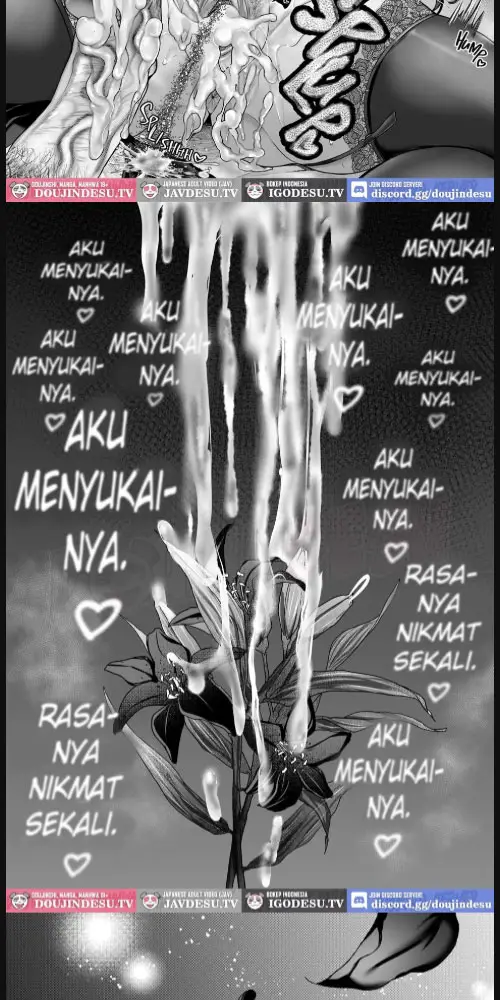 SPLURP
HUMP
SPLISHHH
DOUJINSHI, MANGA, MANHWA 18+
DOUJINDESU.TV
JAPANESE ADULT VIDEO (JAV)
JAVDESU.TV
BOKEP INDONESIA
IGODESU.TV
JOIN DISCORD SERVER!
discord.gg/doujindesu
AKU
MENYUKAI-
NYA.
AKU
MENYUKAI-
NYA.
AKU
MENYUKAI-
NYA.
AKU
MENYUKAI-
NYA.
AKU
MENYUKAI-
NYA.
AKU
MENYUKAI-
NYA.
AKU
MENYUKAI-
NYA.
AKU
MENYUKAI-
NYA.
RASA-
NYA
NIKMAT
SEKALI.
RASA-
NYA
NIKMAT
SEKALI.
AKU
MENYUKAI-
NYA.
DOUJINSHI, MANGA, MANHWA 18+
DOUJINDESU.TV
JAPANESE ADULT VIDEO (JAV)
JAVDESU.TV
BOKEP INDONESIA
IGODESU.TV
JOIN DISCORD SERVER!
discord.gg/doujindesu